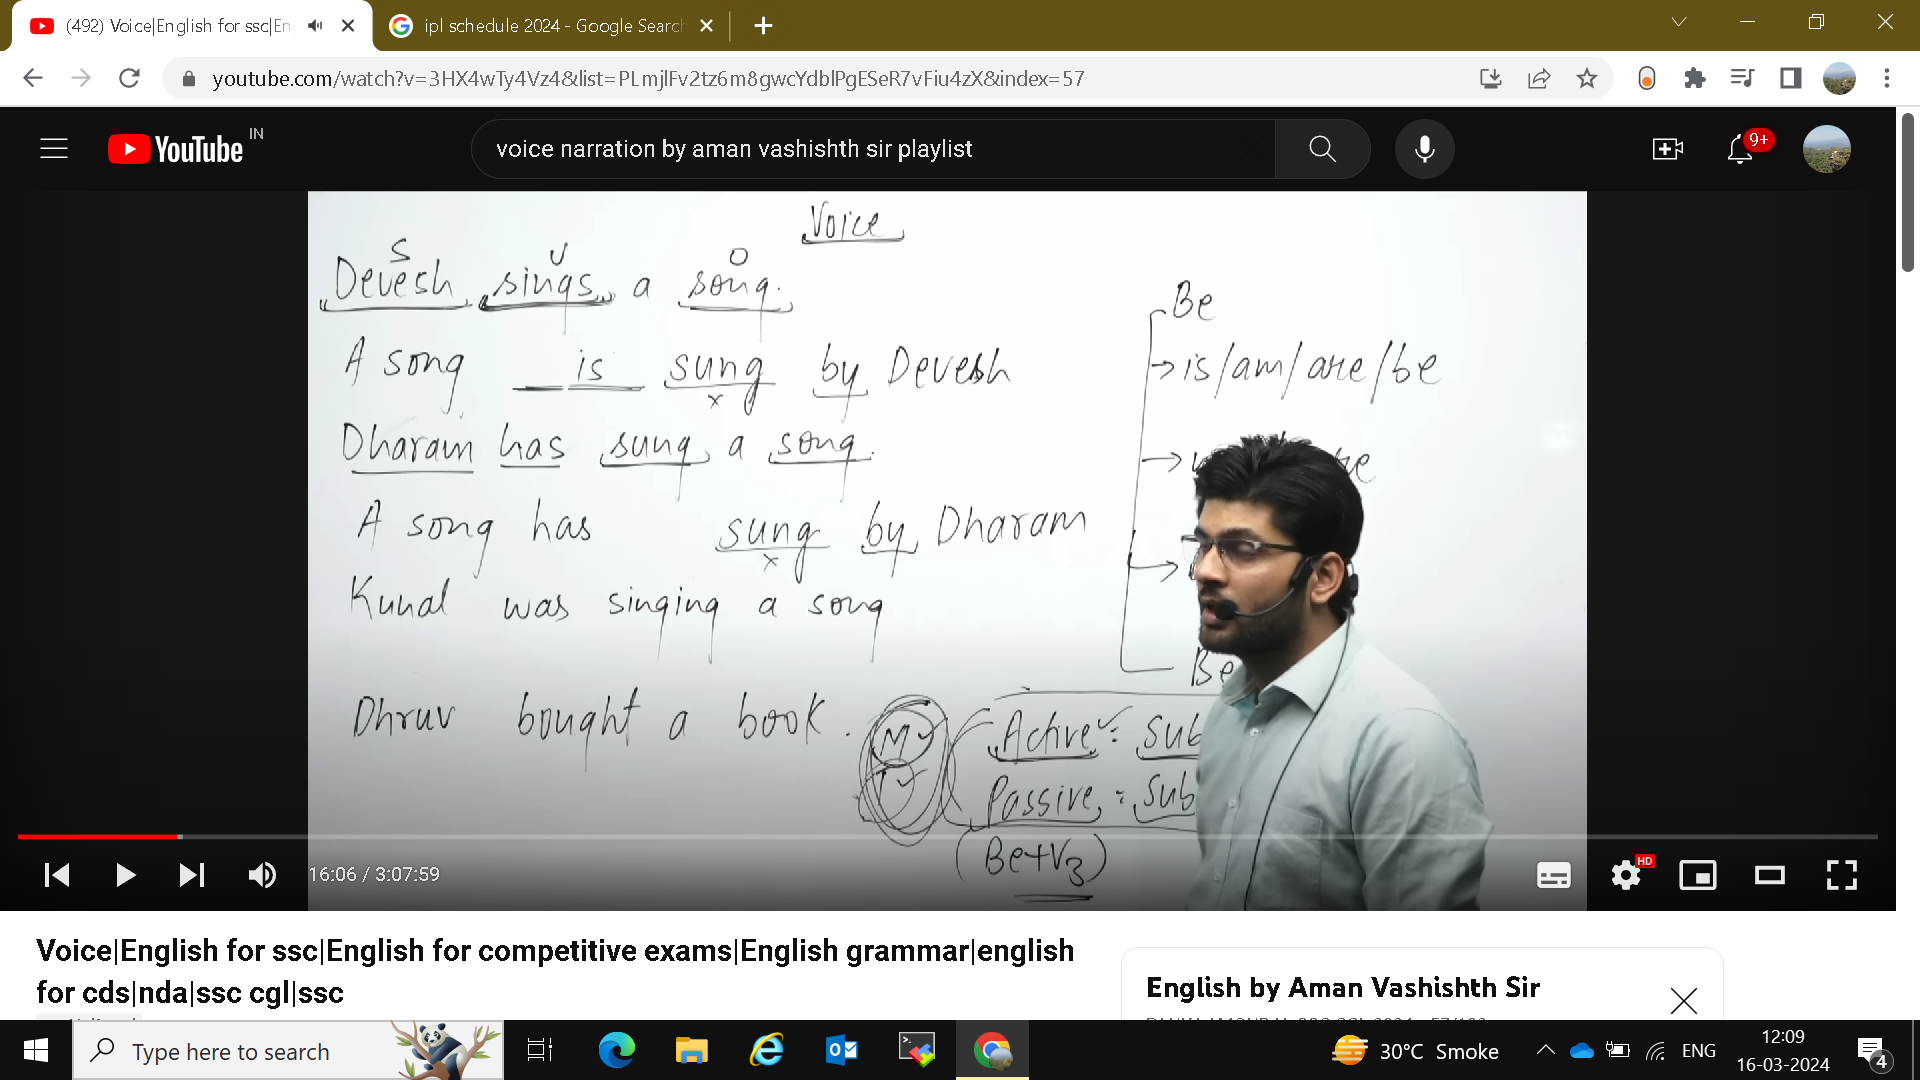 (492) Voice|English for ssc|En
ipl schedule 2024 - Google Search
youtube.com/watch?v=3HX4wTy4Vz4&list=PLmjlFv2tz6m8gwcYdblPgESeR7vFiu4zX&index=57
YouTube IN
voice narration by aman vashishth sir playlist
9+
Voice
S V O
Devesh sings a song.
A song is sung by Devesh
x
Dharam has sung a song.
A song has sung by Dharam
x
Kunal was singing a song
Dhruv bought a book.
Be
→ is/am/are/be
→
→
Be
M
Active : Sub
Passive : Sub
(Be+V3)
16:06 / 3:07:59
HD
Voice|English for ssc|English for competitive exams|English grammar|english
for cds|nda|ssc cgl|ssc
English by Aman Vashishth Sir
Type here to search
30°C Smoke
ENG
12:09
16-03-2024
4